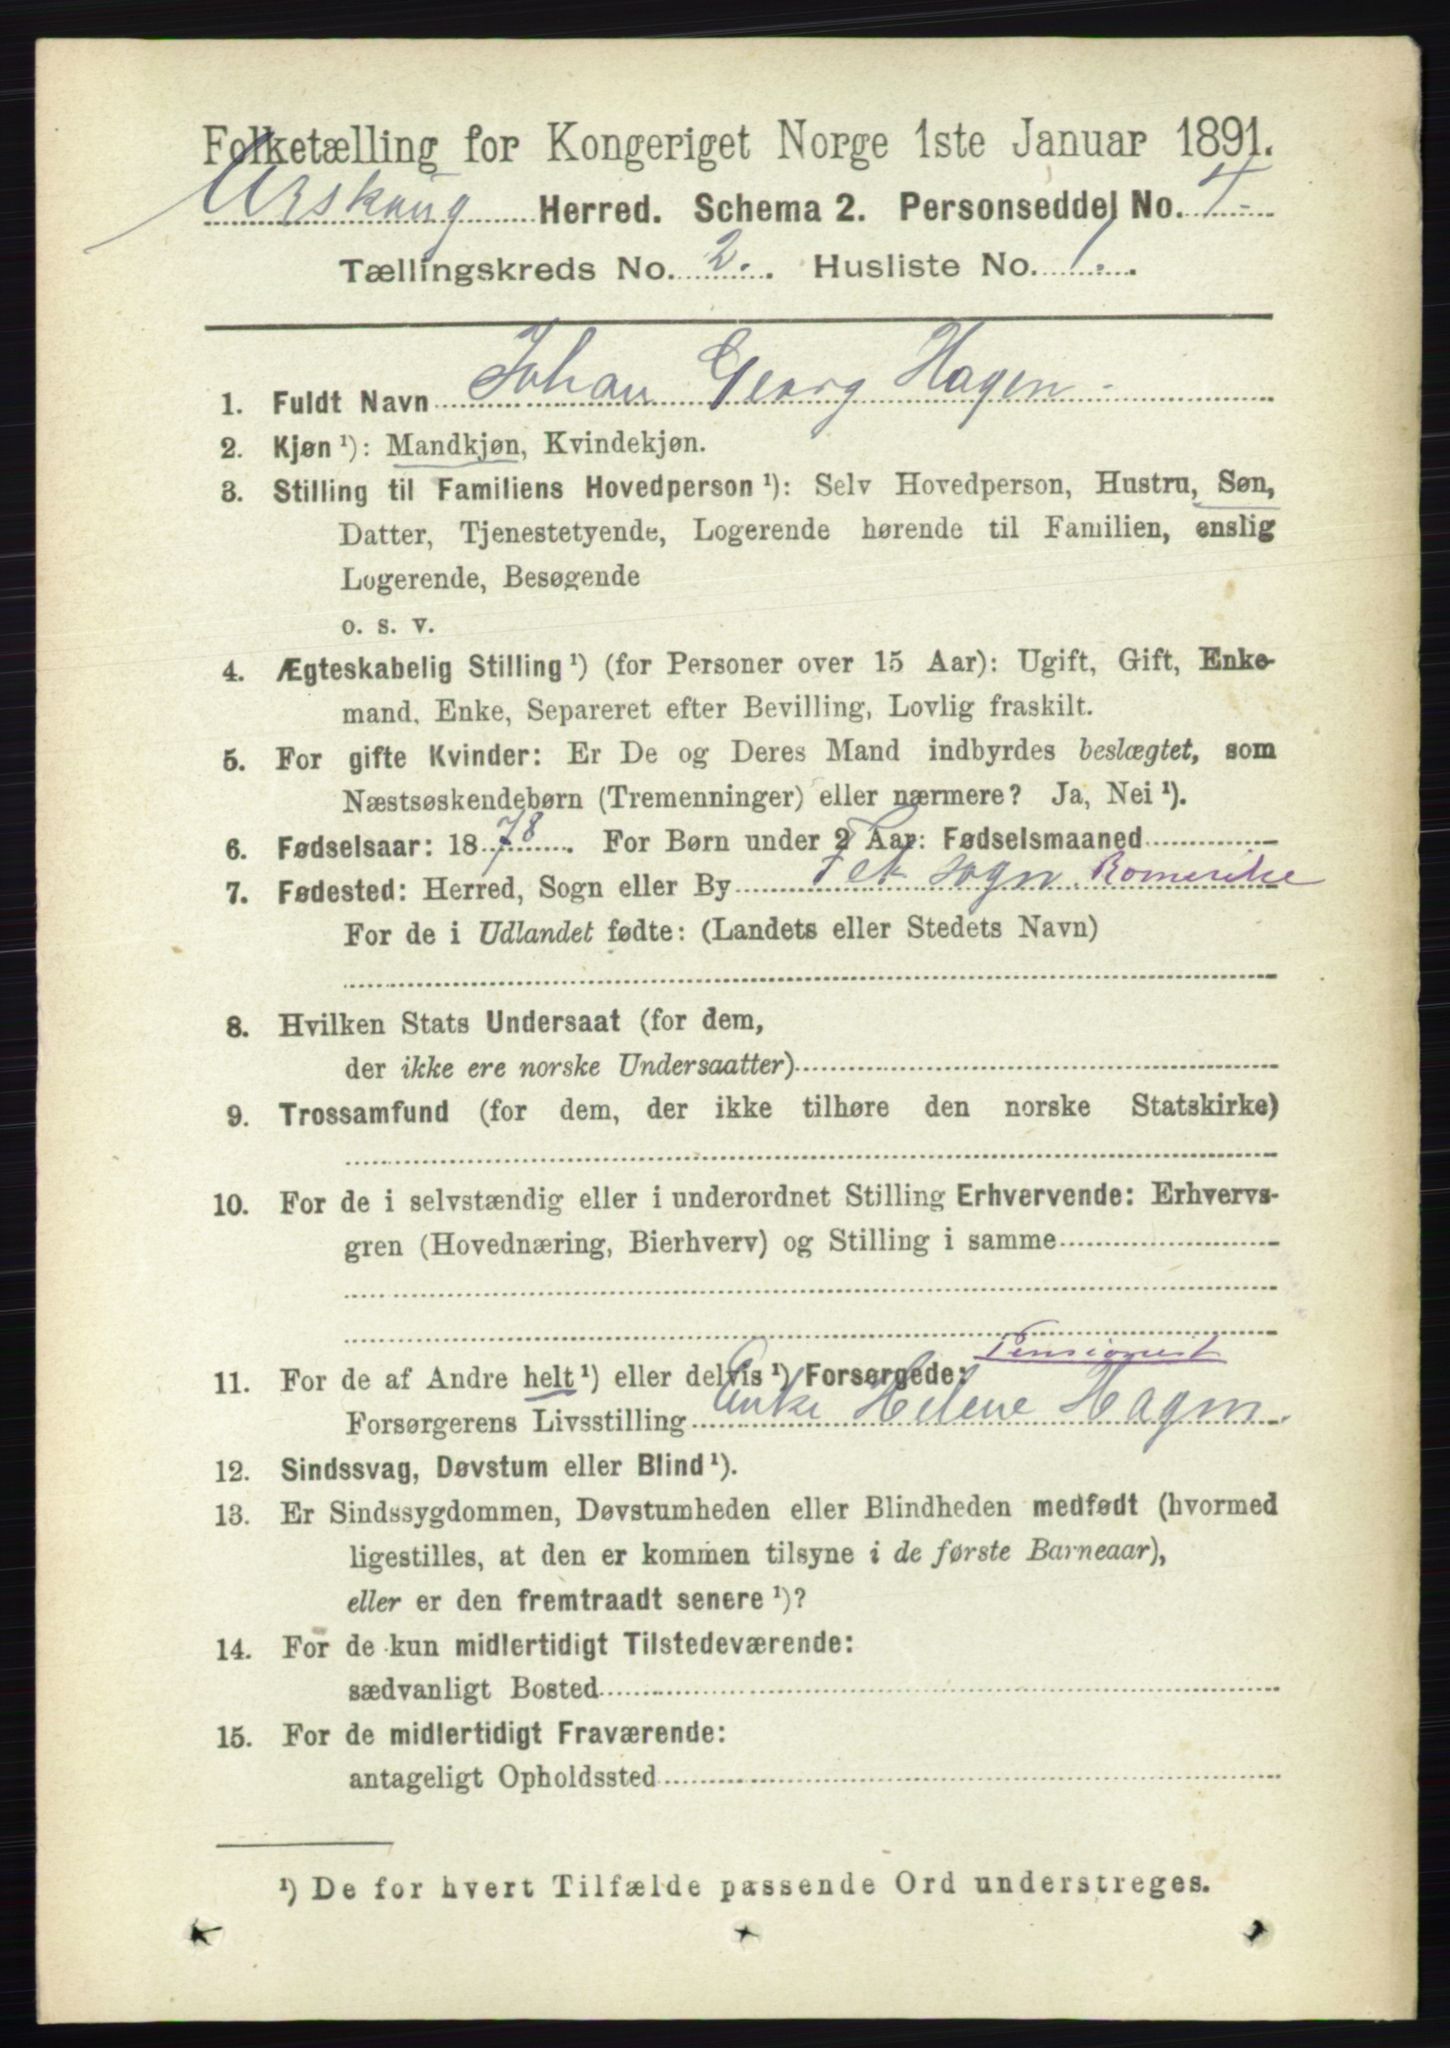 Folketælling for Kongeriget Norge 1ste Januar 1891.
Urskoug Herred. Schema 2. Personseddel No. 4.
Tællingskreds No. 2. Husliste No. 1.
1. Fuldt Navn Johan Georg Hagen
2. Kjøn ¹): Mandkjøn, Kvindekjøn.
3. Stilling til Familiens Hovedperson ¹): Selv Hovedperson, Hustru, Søn,
Datter, Tjenestetyende, Logerende hørende til Familien, enslig
Logerende, Besøgende
o. s. v.
4. Ægteskabelig Stilling ¹) (for Personer over 15 Aar): Ugift, Gift, Enke-
mand, Enke, Separeret efter Bevilling, Lovlig fraskilt.
5. For gifte Kvinder: Er De og Deres Mand indbyrdes beslægtet, som
Næstsøskendebørn (Tremenninger) eller nærmere? Ja, Nei ¹).
6. Fødselsaar: 1878. For Børn under 2 Aar: Fødselsmaaned
7. Fødested: Herred, Sogn eller By Fet sogn. Romerike
For de i Udlandet fødte: (Landets eller Stedets Navn)
8. Hvilken Stats Undersaat (for dem,
der ikke ere norske Undersaatter)
9. Trossamfund (for dem, der ikke tilhøre den norske Statskirke)
10. For de i selvstændig eller i underordnet Stilling Erhvervende: Erhvervs-
gren (Hovednæring, Bierhverv) og Stilling i samme
Pensionist
11. For de af Andre helt ¹) eller delvis ¹) Forsørgede:
Forsørgerens Livsstilling Enke Helene Hagen.
12. Sindssvag, Døvstum eller Blind ¹).
13. Er Sindssygdommen, Døvstumheden eller Blindheden medfødt (hvormed
ligestilles, at den er kommen tilsyne i de første Barneaar),
eller er den fremtraadt senere ¹)?
14. For de kun midlertidigt Tilstedeværende:
sædvanligt Bosted
15. For de midlertidigt Fraværende:
antageligt Opholdssted
¹) De for hvert Tilfælde passende Ord understreges.